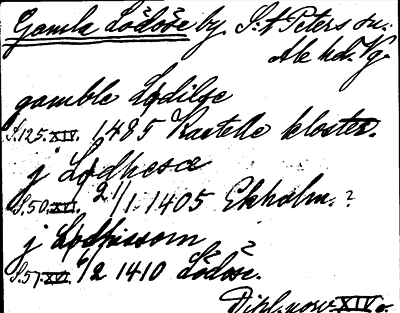 Gamla Lödöse by S:t Peters su:
Ale hd. Vg.
gamble Lødilse
S.125.XIV. 1485 Kastelle kloster.
j Lødhesæ
S.50.XVI. 21/1 1405 Ekholm.?
j
S.57.XVI. 6/2 1410 Lödöse.
Dipl. norv. XIV